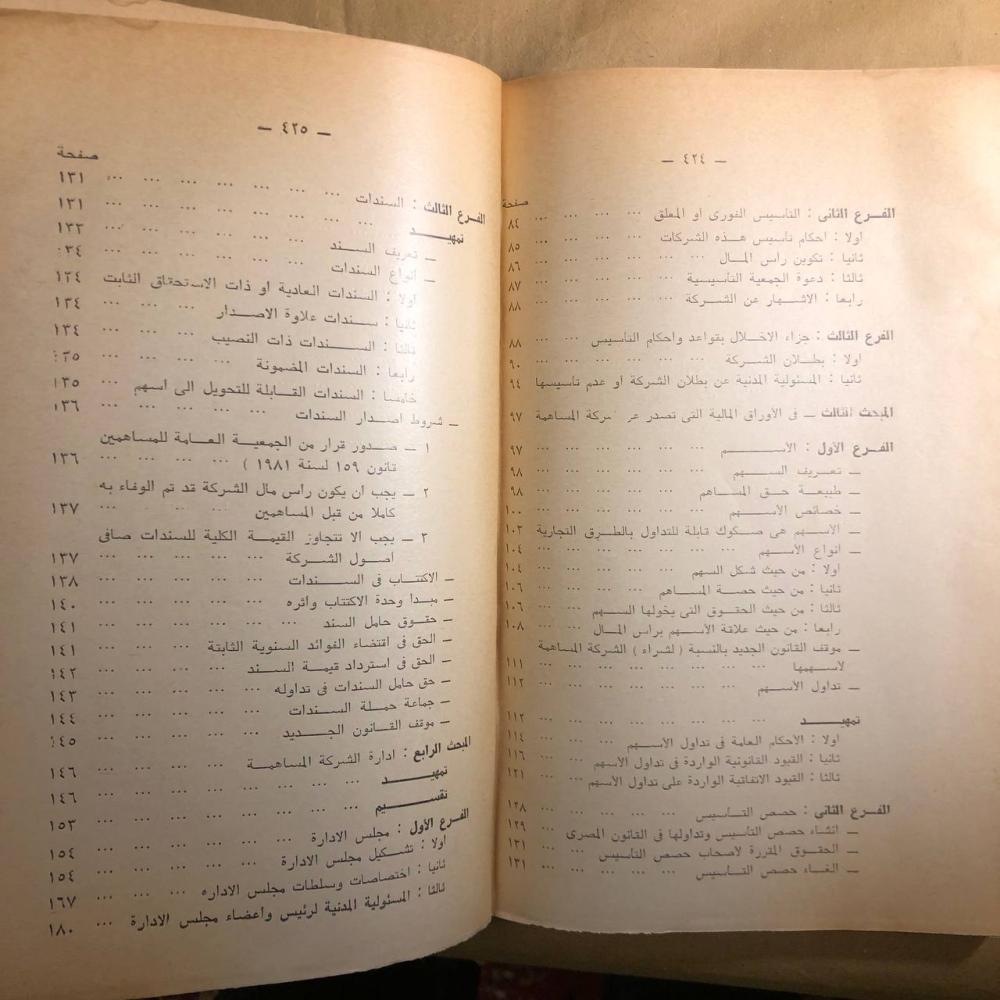 — ٤٢٤ —
صفحة
الفرع الثانى : التأسيس الفورى او المغلق ... ... ... ... ٨٤
اولا : احكام تأسيس هذه الشركات ... ... ... ... ٨٥
ثانيا : تكوين رأس المال ... ... ... ... ... ٨٦
ثالثا : دعوة الجمعية التأسيسية ... ... ... ... ٨٧
رابعا : الاشهار عن الشركة ... ... ... ... ٨٨
الفرع الثالث : جزاء الاخلال بقواعد واحكام التأسيس ... ... ... ٨٨
اولا : بطلان الشركة ... ... ... ... ... ٩٠
ثانيا : المسئولية المدنية عن بطلان الشركة او عدم تأسيسها ٩٤
المبحث الثالث — فى الأوراق المالية التى تصدر عن شركة المساهمة ٩٧
الفرع الأول : الأسهم ... ... ... ... ... ... ٩٧
— تعريف السهم ... ... ... ... ... ... ٩٨
— طبيعة حق المساهم ... ... ... ... ... ٩٨
— خصائص الأسهم ... ... ... ... ... ١٠٠
— الأسهم هى صكوك قابلة للتداول بالطرق التجارية ١٠٣
— انواع الأسهم ... ... ... ... ... ... ١٠٤
اولا : من حيث شكل السهم ... ... ... ... ١٠٤
ثانيا : من حيث حصة المساهم ... ... ... ... ١٠٦
ثالثا : من حيث الحقوق التى يخولها السهم ... ... ١٠٦
رابعا : من حيث علاقة الأسهم برأس المال ... ... ١٠٨
— موقف القانون الجديد بالنسبة ( لشراء ) الشركة المساهمة
لأسهمها ... ... ... ... ... ... ... ١١١
— تداول الأسهم ... ... ... ... ... ... ١١٢
تمهيد ... ... ... ... ... ... ... ١١٢
اولا : الأحكام العامة فى تداول الأسهم ... ... ... ١١٤
ثانيا : القيود القانونية الواردة فى تداول الأسهم ... ... ١١٦
ثالثا : القيود الاتفاقية الواردة على تداول الأسهم ... ١٢١
الفرع الثانى : حصص التأسيس ... ... ... ... ... ١٢٨
— انشاء حصص التأسيس وتداولها فى القانون المصرى ... ١٢٩
— الحقوق المقررة لأصحاب حصص التأسيس ... ... ... ١٣١
— الغاء حصص التأسيس ... ... ... ... ... ١٣١
— ٤٢٥ —
صفحة
الفرع الثالث : السندات ... ... ... ... ... ... ... ١٣١
تمهيد ... ... ... ... ... ... ... ... ١٣١
— تعريف السند ... ... ... ... ... ... ١٣٣
— انواع السندات ... ... ... ... ... ... ١٣٤
اولا : السندات العادية او ذات الاستحقاق الثابت ١٣٤
ثانيا : سندات علاوة الاصدار ... ... ... ... ١٣٤
ثالثا : السندات ذات النصيب ... ... ... ... ١٣٤
رابعا : السندات المضمونة ... ... ... ... ١٣٥
خامسا : السندات القابلة للتحويل الى اسهم ... ١٣٥
— شروط اصدار السندات ... ... ... ... ... ١٣٦
١ — صدور قرار من الجمعية العامة للمساهمين
قانون ١٥٩ لسنة ١٩٨١ ) ... ... ... ... ١٣٦
٢ — يجب ان يكون رأس مال الشركة قد تم الوفاء به
كاملا من قبل المساهمين ... ... ... ... ١٣٧
٣ — يجب الا تتجاوز القيمة الكلية للسندات صافى
اصول الشركة ... ... ... ... ... ... ١٣٧
— الاكتتاب فى السندات ... ... ... ... ... ١٣٨
— مبدأ وحدة الاكتتاب واثره ... ... ... ... ١٤٠
— حقوق حامل السند ... ... ... ... ... ١٤١
— الحق فى اقتضاء الفوائد السنوية الثابتة ... ... ١٤١
— الحق فى استرداد قيمة السند ... ... ... ... ١٤٢
— حق حامل السندات فى تداوله ... ... ... ... ١٤٣
— جماعة حملة السندات ... ... ... ... ١٤٤
— موقف القانون الجديد ... ... ... ... ١٤٥
المبحث الرابع : ادارة الشركة المساهمة ... ... ... ... ١٤٦
تمهيد ... ... ... ... ... ... ... ١٤٦
تقسيم ... ... ... ... ... ... ... ١٥٣
الفرع الأول : مجلس الادارة ... ... ... ... ... ١٥٤
اولا : تشكيل مجلس الادارة ... ... ... ... ١٥٤
ثانيا : اختصاصات وسلطات مجلس الادارة ... ... ١٦٧
ثالثا : المسئولية المدنية لرئيس واعضاء مجلس الادارة ... ١٨٠